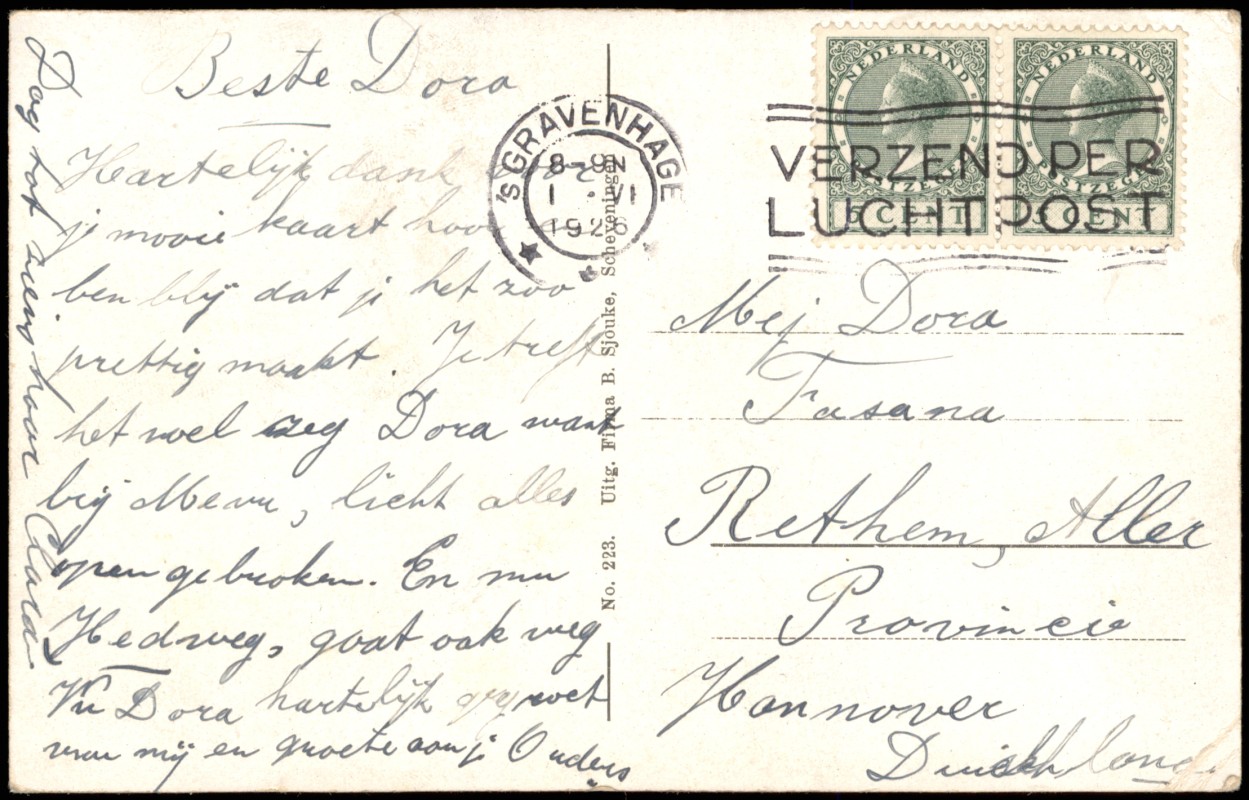 Beste Dora
Hartelijk dank voor
je mooie kaart hoor
ben blij dat je het zoo
prettig maakt. Je treft
het wel zeg Dora want
bij Mevr, licht alles
open gebroken. En nu
Hedweg, gaat ook weg
Nu Dora hartelijk gegroet
van mij en groete aan je Ouders
Dag tot ziens hoor Clara
No. 223. Uitg. Firma B. Sjouke, Scheveningen
'S GRAVENHAGE
8-9 N
1 VI
1928
NEDERLAND
POSTZEGEL
5 CENT
NEDERLAND
POSTZEGEL
5 CENT
VERZEND PER
LUCHTPOST
Mej Dora
Fasana
Rethem, Aller
Provincie
Hannover